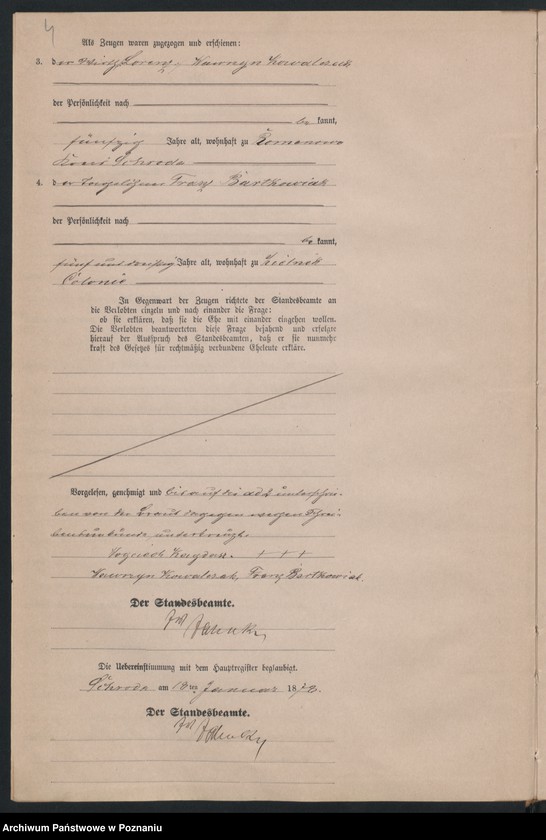 4
Als Zeugen waren zugezogen und erschienen:
3. der Wirth Lorenz, Wawrzyn Kowalczak
der Persönlichkeit nach
be kannt,
fünfzig Jahre alt, wohnhaft zu Romanowo
Kreis Schroda
4. der Tagelöhner Franz Bartkowiak
der Persönlichkeit nach
be kannt,
fünf und Jahre alt, wohnhaft zu
Colonie
In Gegenwart der Zeugen richtete der Standesbeamte an
die Verlobten einzeln und nach einander die Frage:
ob sie erklären, daß sie die Ehe mit einander eingehen wollen.
Die Verlobten beantworteten diese Frage bejahend und erfolgte
hierauf der Ausspruch des Standesbeamten, daß er sie nunmehr
kraft des Gesetzes für rechtmäßig verbundene Eheleute erkläre.
Vorgelesen, genehmigt und bis auf die ad 2 unterschrie-
ben von der Braut dagegen wegen Schrei-
bensunkunde unterkreuzt.
+ + +
Wawrzyn Kowalczak, Franz Bartkowiak.
Der Standesbeamte.
Die Uebereinstimmung mit dem Hauptregister beglaubigt.
Schroda am ten Januar 18
Der Standesbeamte.
Archiwum Państwowe w Poznaniu